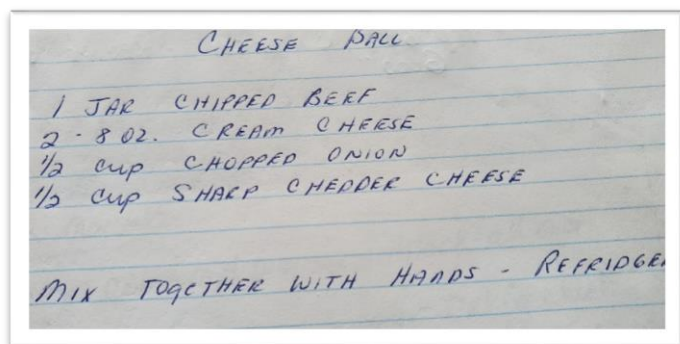 CHEESE BALL
1 JAR CHIPPED BEEF
2 - 8 OZ. CREAM CHEESE
1/2 cup CHOPPED ONION
1/2 cup SHARP CHEDDER CHEESE
MIX TOGETHER WITH HANDS - REFRIDGE